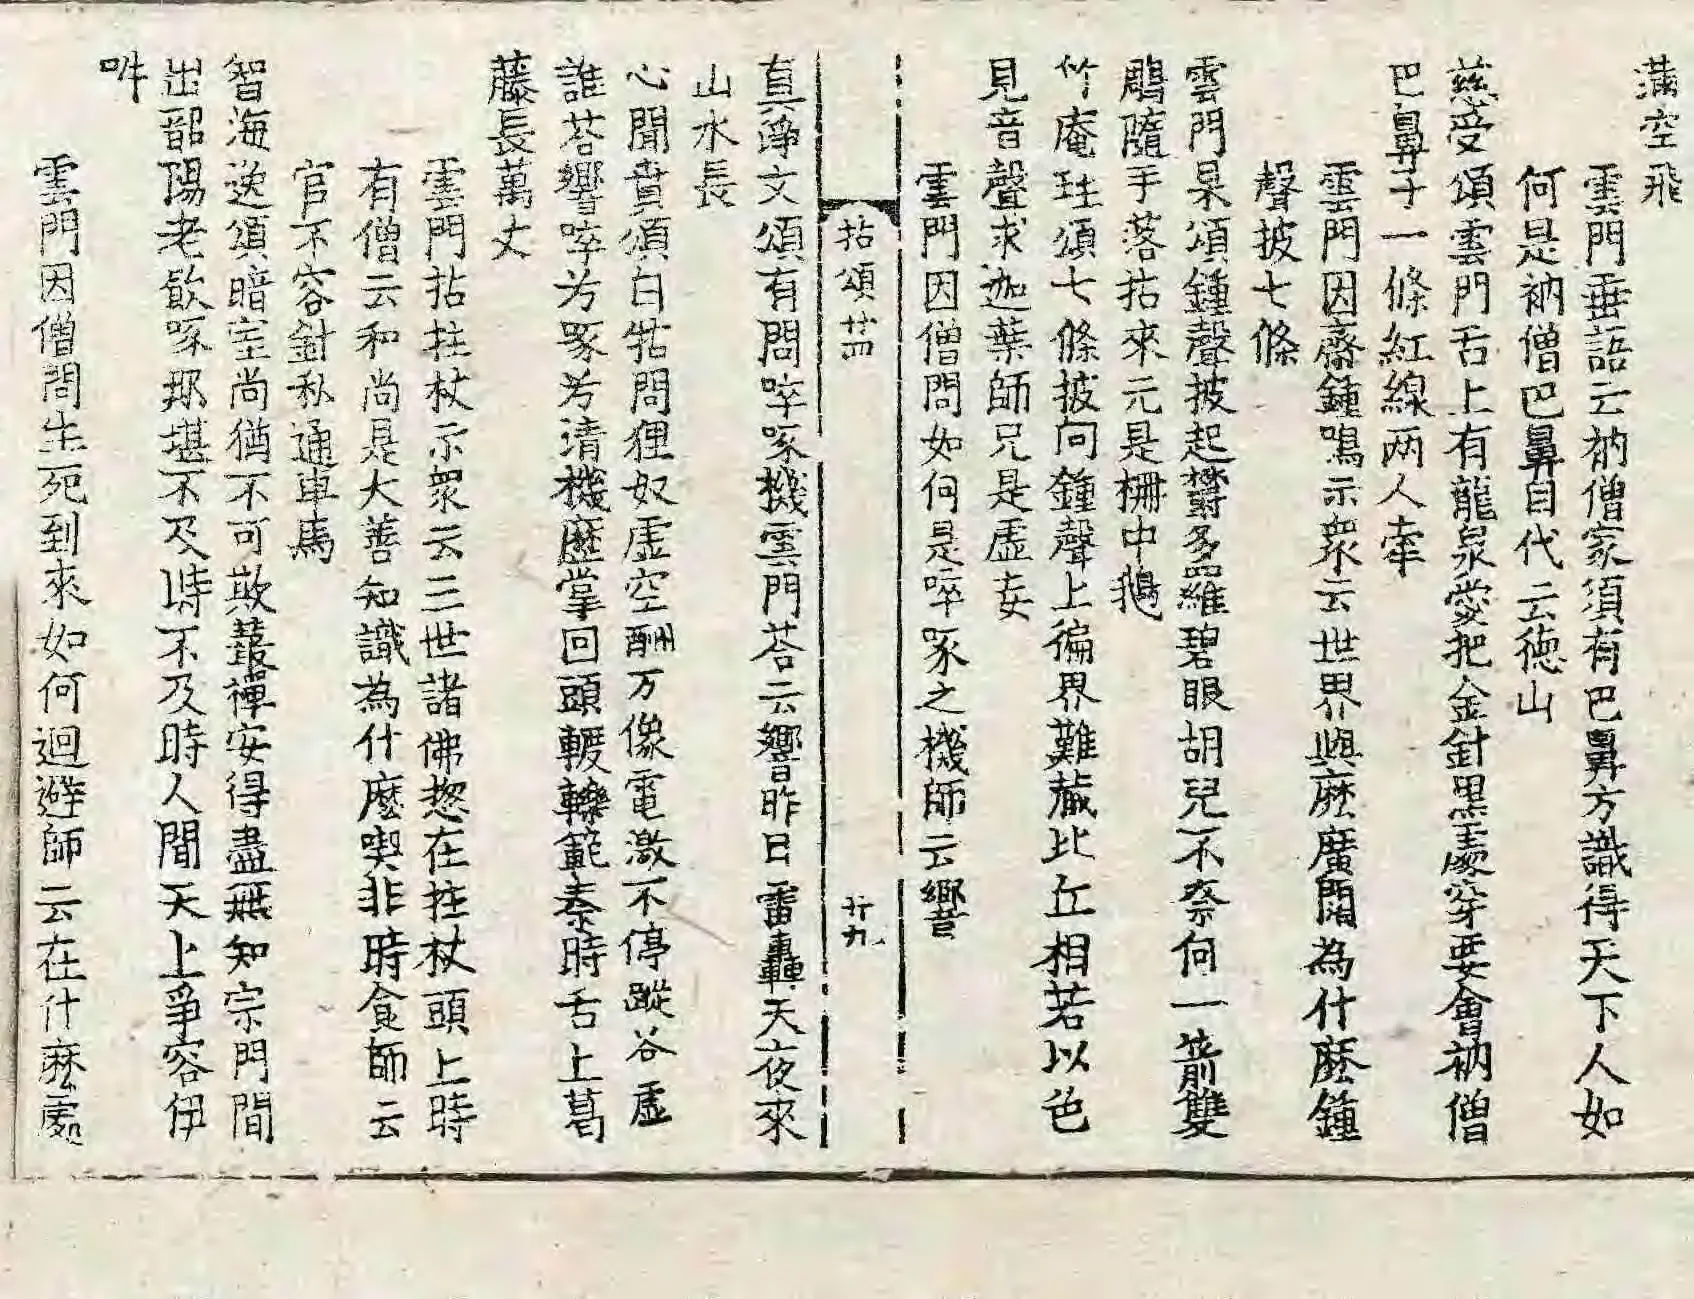 滿空飛
雲門垂語云衲僧家須有巴鼻方識得天下人如
何是衲僧巴鼻自代云德山
慈受頌雲門舌上有龍泉愛把金針黑處穿要會衲僧
巴鼻子一條紅線两人牽
雲門因齋鍾鳴示衆云世界與麽廣闊為什麽鍾
聲披七條
雲門杲頌鍾聲披起欝多羅碧眼胡兒不奈何一箭雙
鵰隨手落拈來元是柵中鵝
竹庵珪頌七條披向鍾聲上徧界難藏比丘相若以色
見音聲求迦葉師兄是虛妄
雲門因僧問如何是啐啄之機師云響
拈頌廿四
廿九
真淨文頌有問啐啄機雲門荅云響昨日雷轟天夜來
山水長
心聞賁頌白牯問狸奴虛空酬万像電激不停蹤谷虛
誰荅響啐兮啄兮清機歷掌回頭轣轢範秦時舌上葛
藤長萬丈
雲門拈拄杖示衆云三世諸佛揔在拄杖頭上時
有僧云和尚是大善知識為什麽喫非時食師云
官不容針私通車馬
智海逸頌暗室尚猶不可欺叢禪安得盡無知宗門間
出韶陽老飮啄那堪不及時不及時人間天上爭容伊
吽
雲門因僧問生死到來如何迴避師云在什麽處